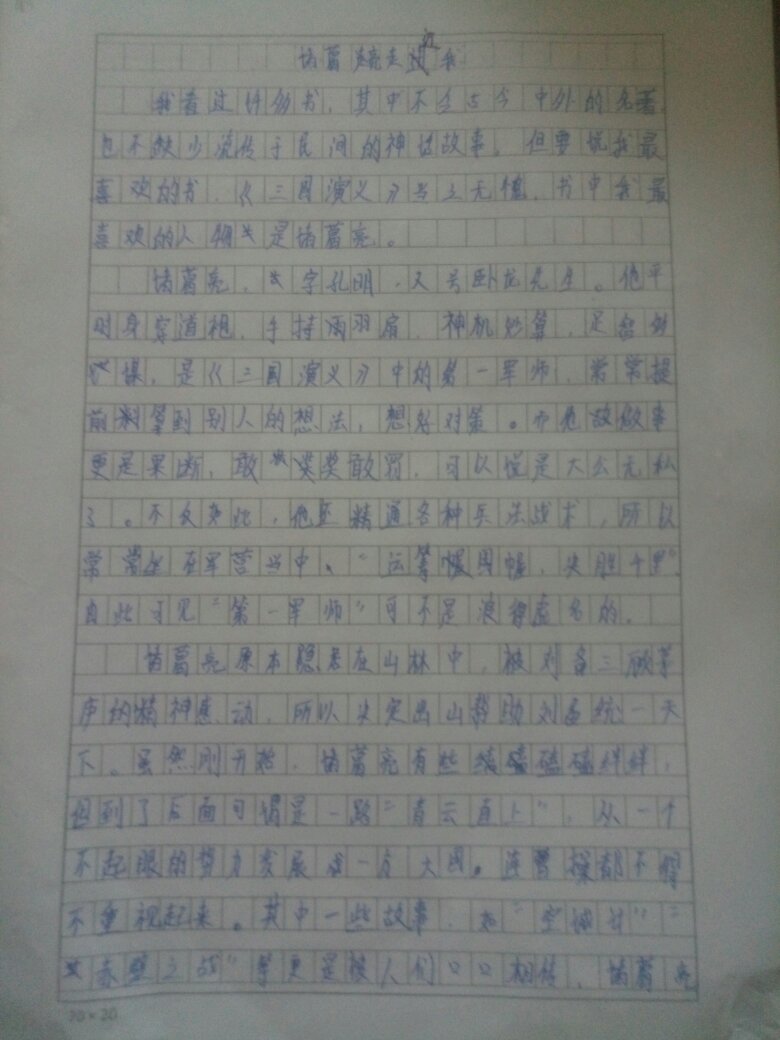 诸葛亮走近我
我看过许多书，其中不乏古今中外的名著，
也不缺少流传于民间的神话故事。但要说我最
喜欢的书，《三国演义》当之无愧，书中我最
喜欢的人物是诸葛亮。
诸葛亮，字孔明，又号卧龙先生。他平
时身穿道袍，手持雨羽扇，神机妙算，足智多
谋，是《三国演义》中的第一军师，常常提
前料算到别人的想法，想好对策。而他做事
更是果断，敢奖敢罚，可以说是大公无私
了。不仅如此，他还精通各种兵法战术，所以
常常坐在军营当中、“运筹帷帽，决胜千里”
由此可见“第一军师”可不是浪得虚名的。
诸葛亮原本隐居在山林中，被刘备三顾茅
庐的精神感动，所以决定出山帮助刘备统一天
下。虽然刚开始，诸葛亮有些磕磕绊绊，
但到了后面可谓是一路“青云直上”，从一个
不起眼的势力发展成一方大国。连曹操都不得
不重视起来。其中一些故事，如“空城计”“
赤壁之战”等更是被人们口口相传，诸葛亮
20×20